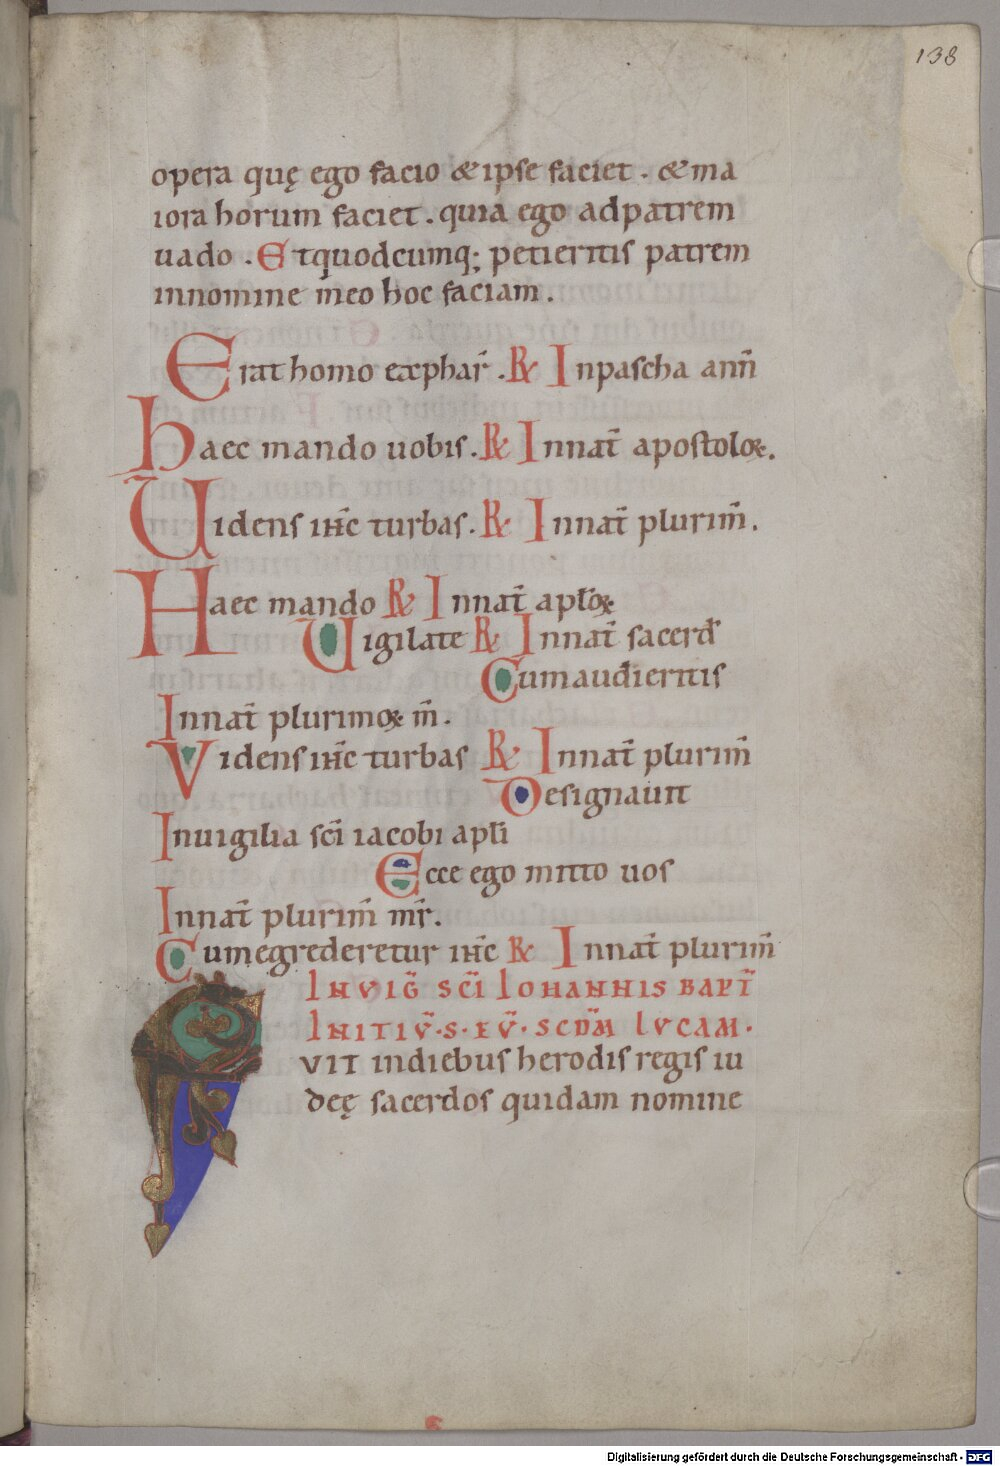 138
opera quę ego facio & ipse faciet . & ma
iora horum faciet . quia ego adpatrem
uado . Etquodcumq; petieritis patrem
innomine meo hoc faciam .
Erat homo exphar̄ . R Inpascha ann̄
Haec mando uobis . R Innat̄ apostoloꝝ .
Uidens ihc̄ turbas . R Innat̄ plurim̄ .
Haec mando R Innat̄ apl̄oꝝ
Uigilate R Innat̄ sacerd̄
Cumaudieritis
Innat̄ plurimoꝝ m̄ .
Videns ihc̄ turbas R Innat̄ plurim̄
Designauit
Inuigilia sc̄i iacobi apl̄i
Ecce ego mitto uos
Innat̄ plurim̄ mr̄ .
Cumegrederetur ihc̄ R Innat̄ plurim̄
INVIḠ SC̄I IOHANNIS BAPT̄
INITIV̄ · S · EV̄ · SCDM̄ LVCAM ·
FVIT indiebus herodis regis iu
deę sacerdos quidam nomine
Digitalisierung gefördert durch die Deutsche Forschungsgemeinschaft - DFG